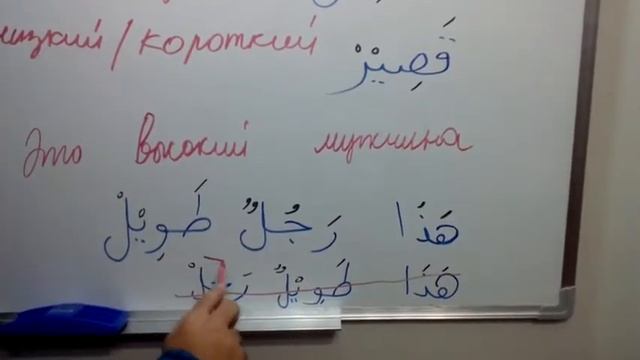 низкий / короткий
قَصِيْرْ
Это высокий мужчина
هَذَا رَجُلٌ طَوِيْلْ
هَذَا طَوِيْلٌ